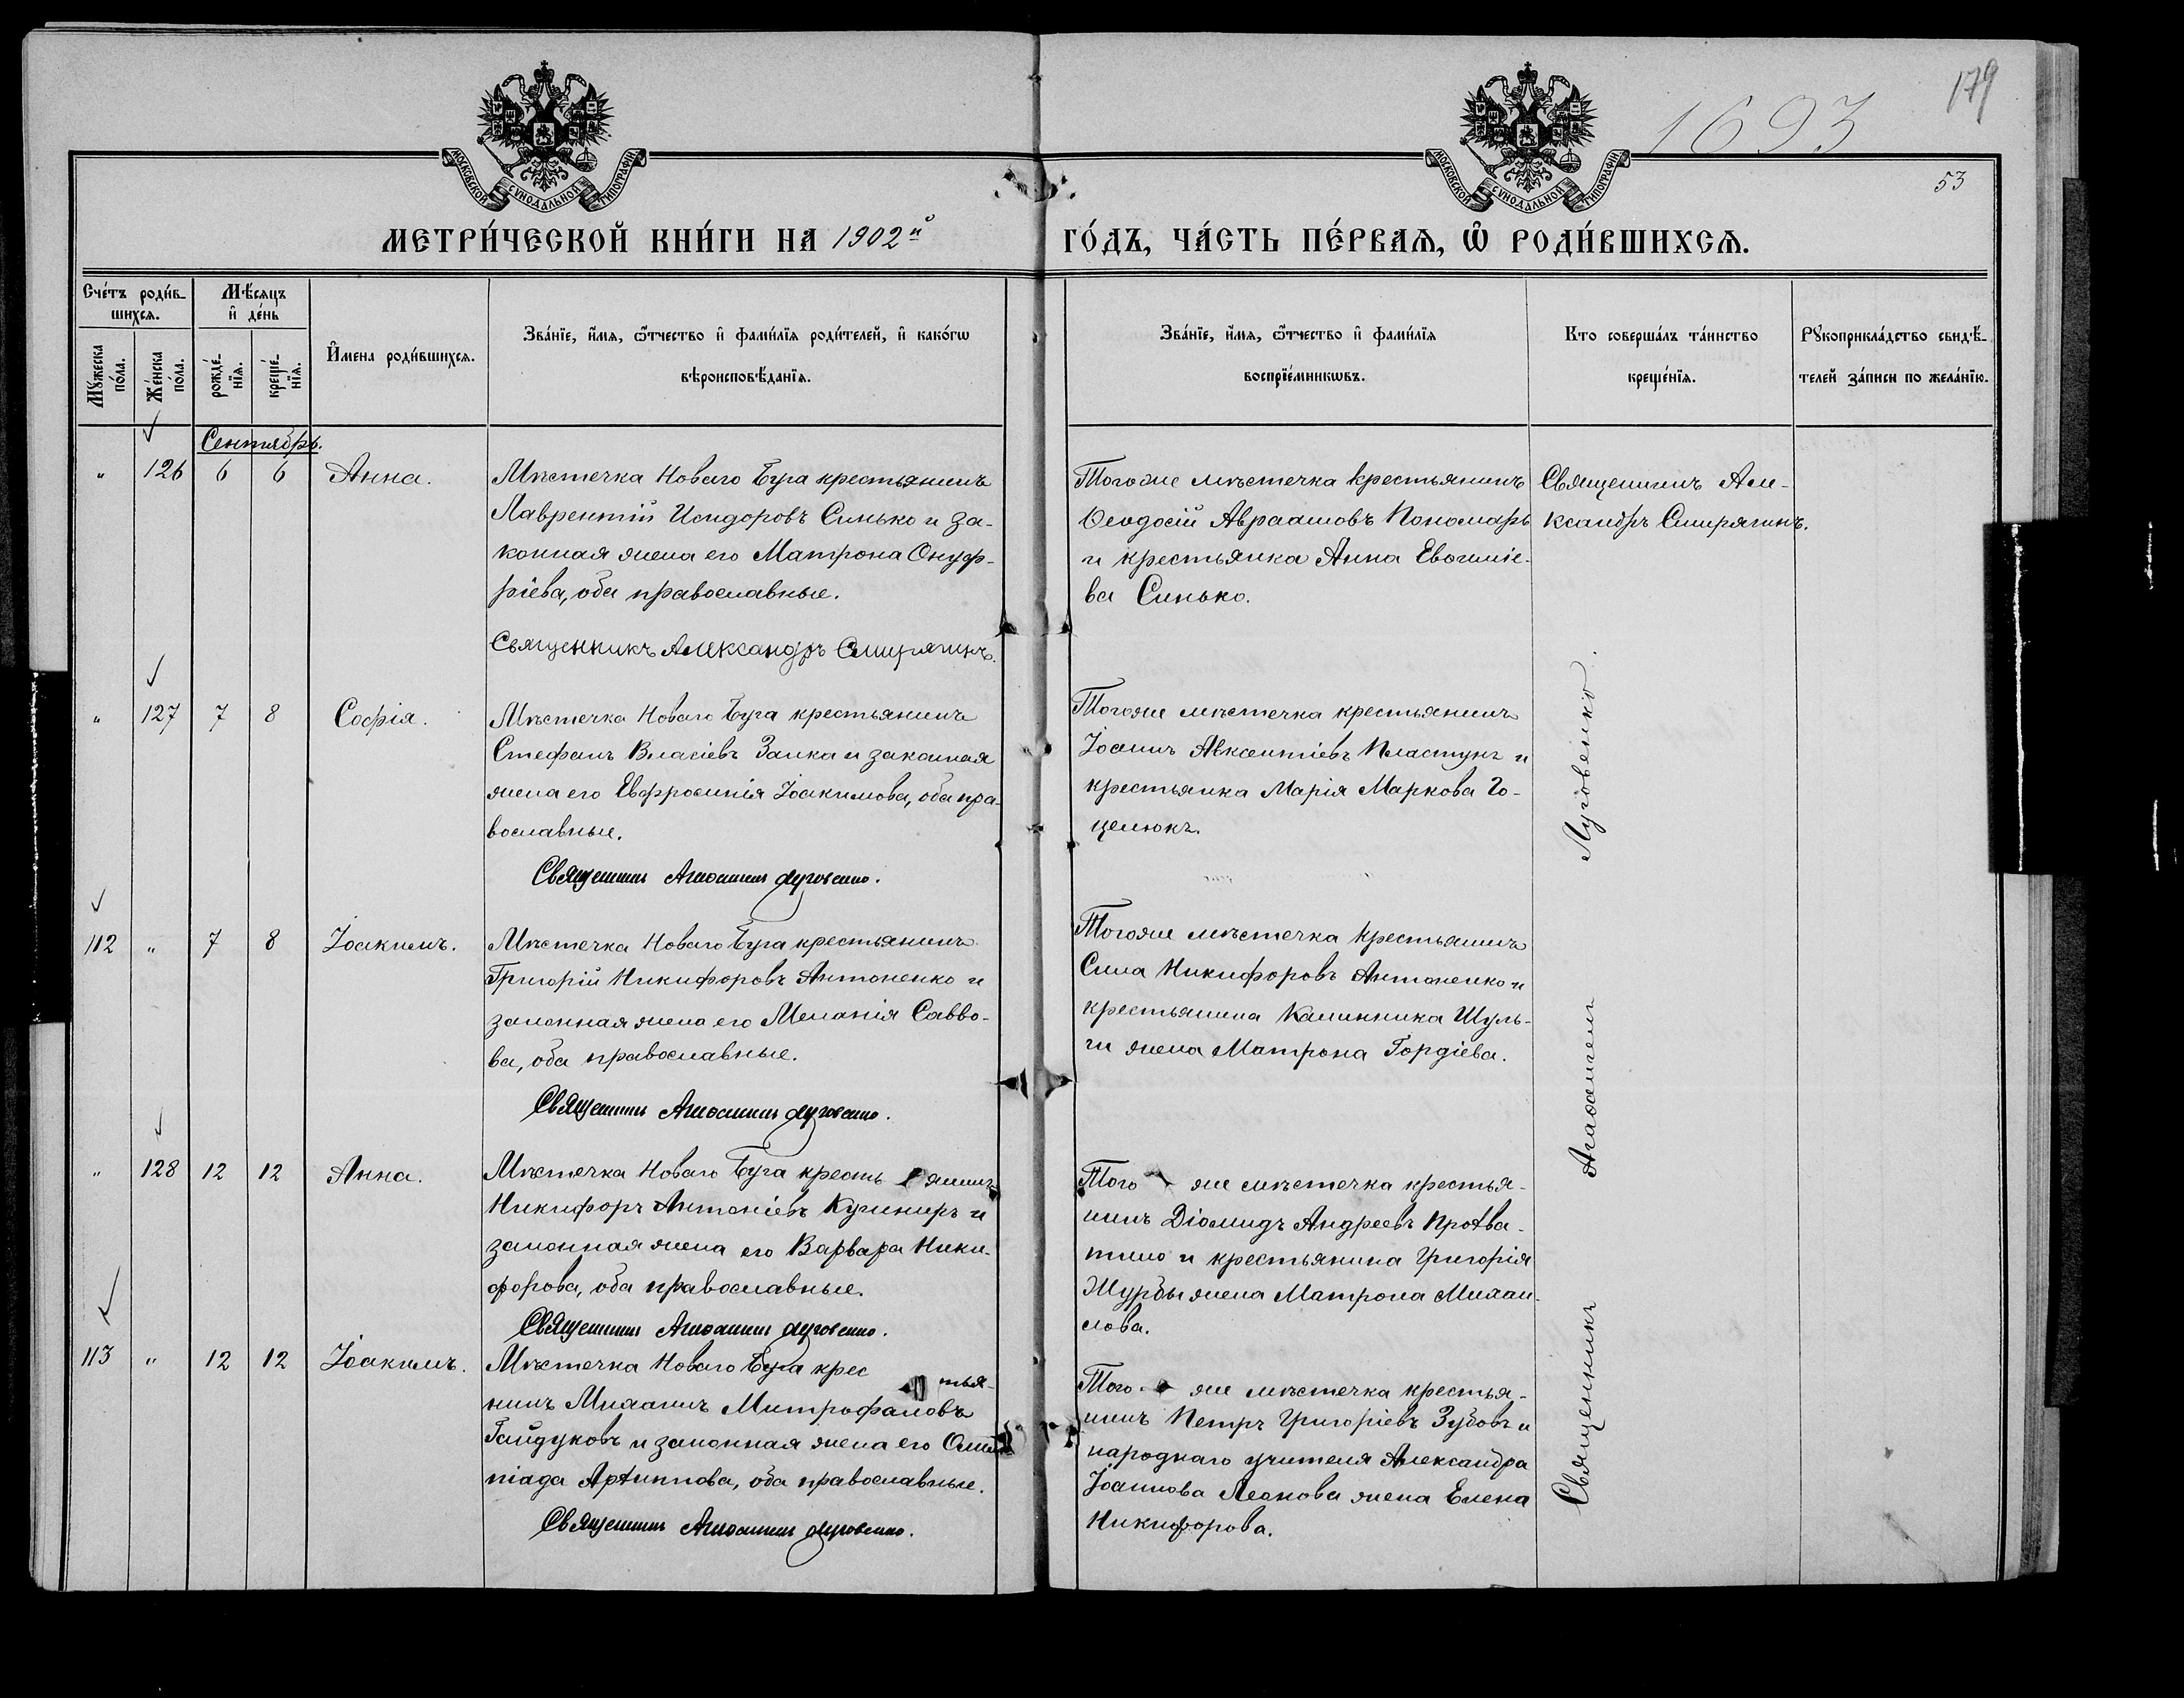 179
1693
53
МОСКОВСКОЙ СѴНОДАЛЬНОЙ ТИПОГРАФІИ
МОСКОВСКОЙ СѴНОДАЛЬНОЙ ТИПОГРАФІИ
МЕТРИ́ЧЕСКОЙ КНИ́ГИ НА 1902й ГО́ДЪ, ЧА́СТЬ ПЕ́РВАѦ, Ѡ҆ РОДИ́ВШИХСѦ.
Сче́тъ роди́в-
шихсѧ.
Мꙋ́жеска по́ла.
Же́нска по́ла.
Мѣ́сѧцъ
и҆ де́нь
рожде́-
нїѧ.
креще́-
нїѧ.
И҆мена роди́вшихсѧ.
Зва́нїе, и҆́мѧ, ѻ҆́тчество и҆ фами́лїѧ роди́телей, и҆ како́гѡ
вѣроисповѣ́данїѧ.
Зва́нїе, и҆́мѧ, ѻ҆́тчество и҆ фами́лїѧ
воспрїе́мникѡвъ.
Кто соверша́лъ та́инство
креще́нїѧ.
Рꙋкоприкла́дство свидѣ́-
телей за́писи по жела́нїю.
Сентябрь.
" 126 6 6 Анна.
Мѣстечка Новаго Буга крестьянинъ
Лаврентій Исидоровъ Синько и за-
конная жена его Матрона Онуф-
ріева, оба православные.
Священникъ Александръ Смирягинъ.
Тогоже мѣстечка крестьянинъ
Ѳеодосій Авраамовъ Пономарь
и крестьянка Анна Евѳиміе-
ва Синько.
Священникъ Але-
ксандръ Смирягинъ.
" 127 7 8 Софія.
Мѣстечка Новаго Буга крестьянинъ
Стефанъ Власіевъ Заика и законная
жена его Евфросинія Іоакимова, оба пра-
вославные.
Священникъ Агаѳангелъ Луговенко.
Тогоже мѣстечка крестьянинъ
Іоаннъ Авксентіевъ Пластунъ и
крестьянка Марія Маркова Го-
целюкъ.
112 " 7 8 Іоакимъ.
Мѣстечка Новаго Буга крестьянинъ
Григорій Никифоровъ Антоненко и
законная жена его Меланія Савво-
ва, оба православные.
Священникъ Агаѳангелъ Луговенко.
Тогоже мѣстечка крестьянинъ
Сила Никифоровъ Антоненко и
крестьянина Каллиника Шуль-
ги жена Матрона Гордіева.
" 128 12 12 Анна.
Мѣстечка Новаго Буга кресть янинъ
Никифоръ Антоніевъ Кушниръ и
законная жена его Варвара Ники-
форова, оба православные.
Священникъ Агаѳангелъ Луговенко.
Того же мѣстечка крестья-
нинъ Діомидъ Андреевъ
и крестьянина Григорія
Журбы жена Матрона Михаи-
лова.
113 " 12 12 Іоакимъ.
Мѣстечка Новаго Буга крес
тья-
нинъ Михаилъ Митрофановъ
Гайдуковъ и законная жена его Олим
піада Архиппова, оба православные.
Священникъ Агаѳангелъ Луговенко.
Того же мѣстечка крестья-
нинъ Петръ Григоріевъ Зубовъ и
народнаго учителя Александра
Іоаннова Леонова жена Елена
Никифорова.
Священникъ Агаѳангелъ Луговенко.